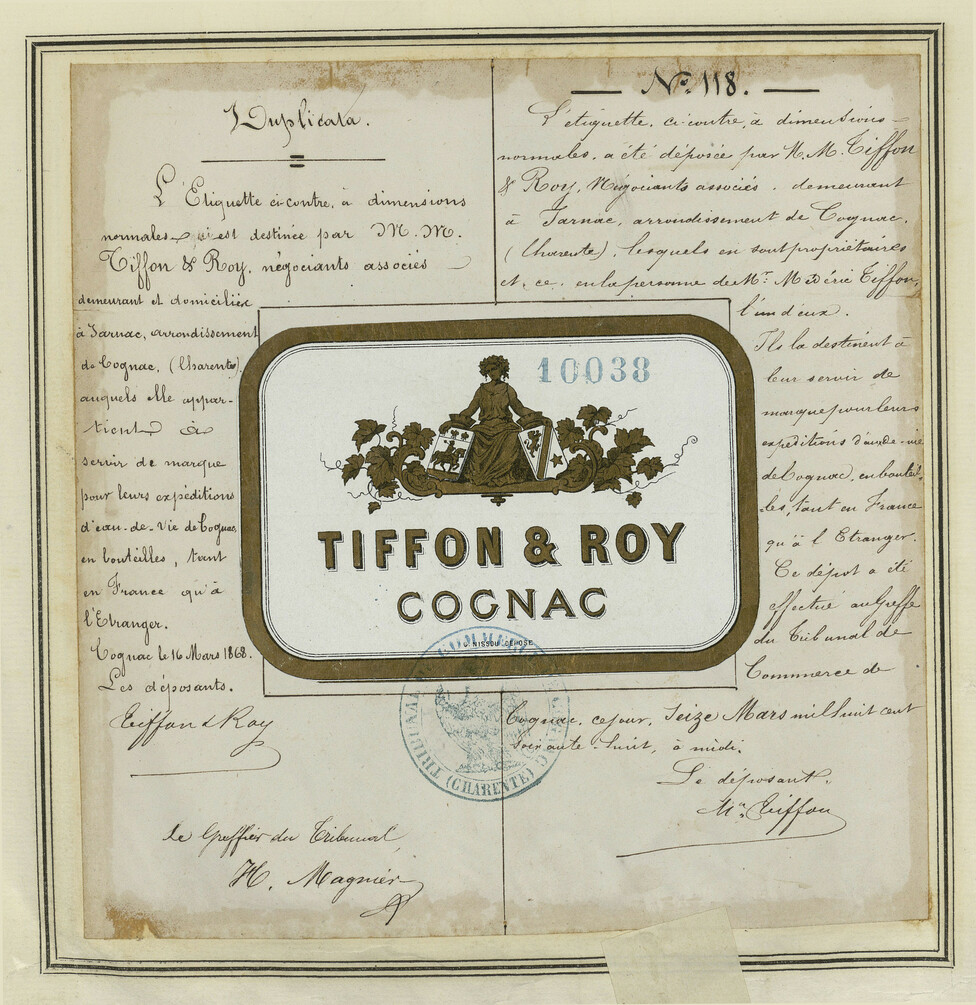 Duplicata.
L'Etiquette ci-contre, à dimensions
normales, est destinée par M. M.
Tiffon & Roy, négociants associés
demeurant et domiciliés
à Jarnac, arrondissement
de Cognac, (Charente),
auxquels elle appar-
tient, à
servir de marque
pour leurs expéditions
d'eau-de-vie de Cognac,
en bouteilles, tant
en France qu'à
l'Etranger.
Cognac le 16 Mars 1868.
Les déposants.
Tiffon & Roy
le Greffier du Tribunal,
H. Magnier
N° 118.
L'étiquette, ci-contre, à dimensions
normales, a été déposée par M. M. Tiffon
& Roy, Négociants associés, demeurant
à Jarnac, arrondissement de Cognac,
(Charente), lesquels en sont propriétaires
et, ce, en la personne de Mr. Médéric Tiffon,
l'un d'eux.
Ils la destinent à
leur servir de
marque pour leurs
expéditions d'eau-de-vie
de Cognac, en bouteil-
les, tant en France
qu'à l'Etranger.
Ce dépôt a été
effectué au Greffe
du Tribunal de
Commerce de
Cognac, ce jour, Seize Mars mil huit cent
soixante-huit, à midi.
Le déposant,
Mic Tiffon
10038
TIFFON & ROY
COGNAC
TRIBUNAL DE COMMERCE DE COGNAC
(CHARENTE)